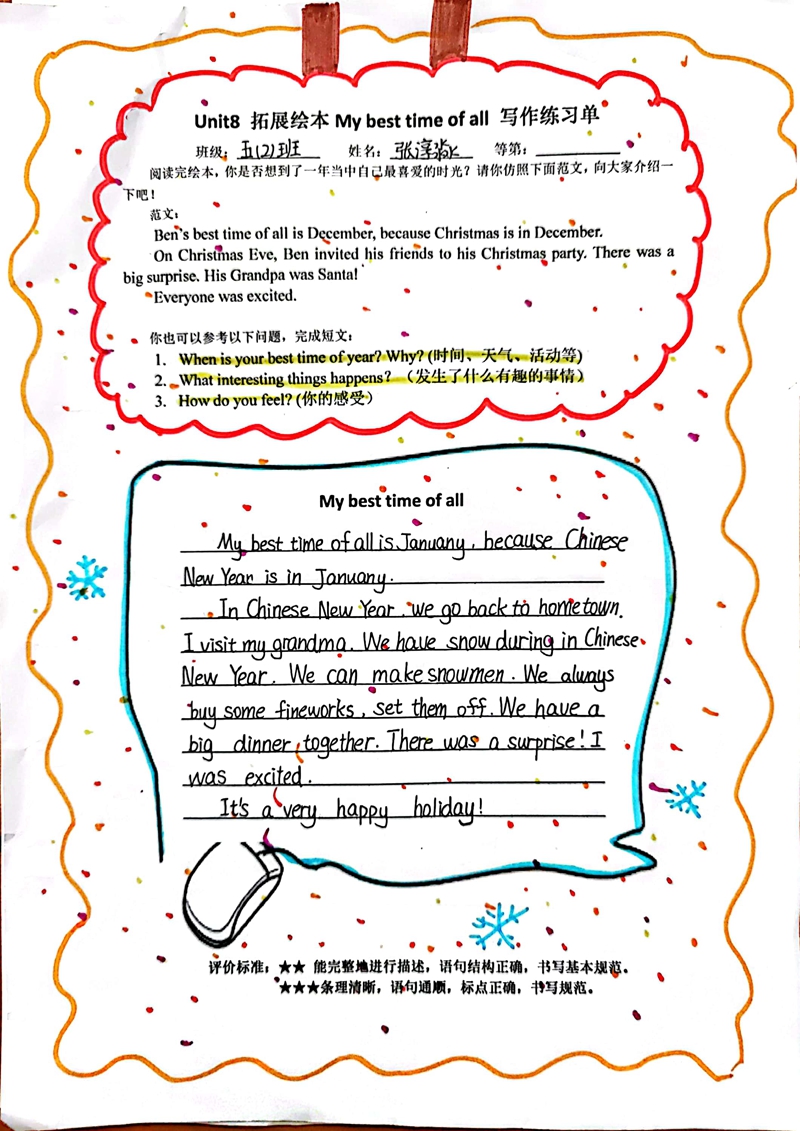 Unit8 拓展绘本 My best time of all 写作练习单
班级：五(2)班 姓名：张淳 等第：
阅读完绘本，你是否想到了一年当中自己最喜爱的时光？请你仿照下面范文，向大家介绍一
下吧！
范文：
Ben's best time of all is December, because Christmas is in December.
On Christmas Eve, Ben invited his friends to his Christmas party. There was a
big surprise. His Grandpa was Santa!
Everyone was excited.
你也可以参考以下问题，完成短文：
1. When is your best time of year? Why? (时间、天气、活动等)
2. What interesting things happens? （发生了什么有趣的事情）
3. How do you feel? (你的感受）
My best time of all
My best time of all is January, because Chinese
New Year is in January.
In Chinese New Year, we go back to hometown.
I visit my grandma. We have snow during in Chinese
New Year. We can make snowmen. We always
buy some fireworks, set them off. We have a
big dinner together. There was a surprise! I
was excited.
It's a very happy holiday!
评价标准：★★ 能完整地进行描述，语句结构正确，书写基本规范。
★★★条理清晰，语句通顺，标点正确，书写规范。